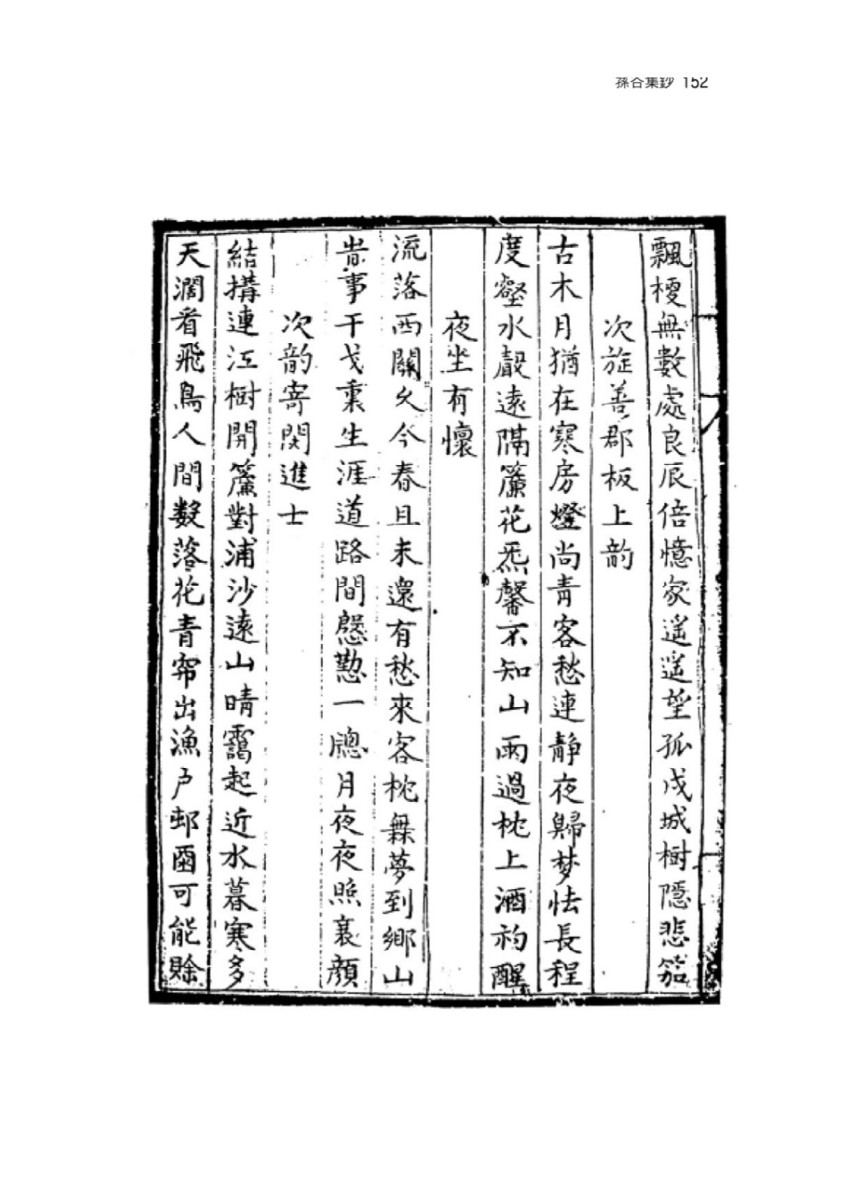 孫谷集鈔 152
飄梗無數處良辰倍憶家遥遥望孤戍城樹隱悲笳
次旌善郡板上韵
古木月猶在寒房燈尚青客愁連静夜歸梦怯長程
度壑水聲遠隔簾花氣馨不知山雨過枕上酒初醒
夜坐有懷
流落西關久今春且未還有愁來客枕無夢到鄉山
時事干戈裏生涯道路間慇懃一牕月夜夜照衰顔
次韵寄閔進士
結搆連江樹開簾對浦沙遠山晴靄起近水暮寒多
天濶看飛鳥人間數落花青帘出漁戶邨酒可能賖